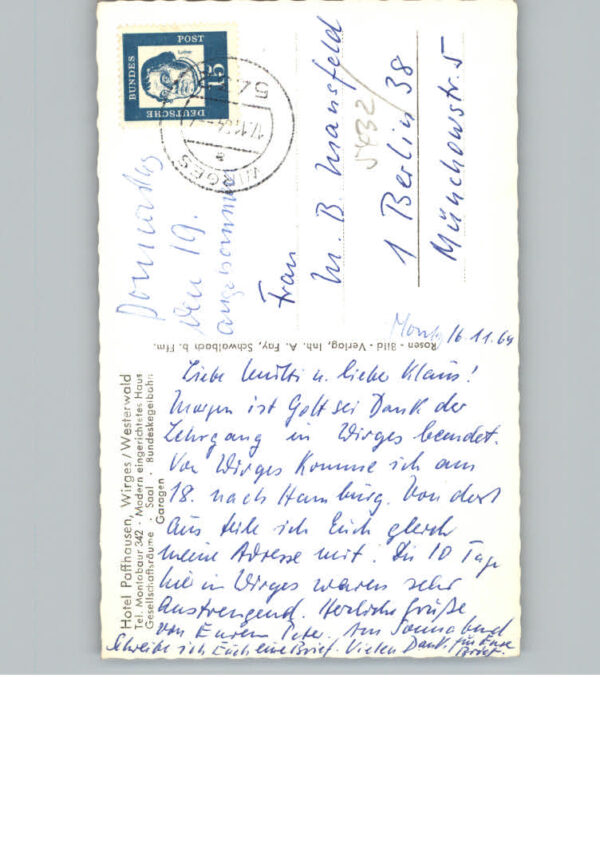 DEUTSCHE
BUNDES
POST
15
Luther
5432
17.11.64
a
WIRGES
Donnerstag
den 19.
angekommen
Frau
M. B. Mansfeld
5432
1 Berlin 38
Münchowstr. 5
Rosen - Bild - Verlag, Inh. A. Fay, Schwalbach b. Ffm.
Hotel Paffhausen, Wirges/Westerwald
Tel. Montabaur 342 · Modern eingerichtetes Haus
Gesellschaftsräume · Saal · Bundeskegelbahn
Garagen
16.11.64
Liebe Mutti u. lieber Klaus!
Morgen ist Gott sei Dank der
Lehrgang in Wirges beendet.
Von Wirges komme ich am
18. nach Hamburg. Von dort
aus teile ich Euch gleich
meine Adresse mit. Die 10 Tage
hier in Wirges waren sehr
anstrengend. Herzliche Grüße
von Eurem Peter. Am Sonnabend
schreibe ich Euch eine Brief. Vielen Dank für Eure
Brief.